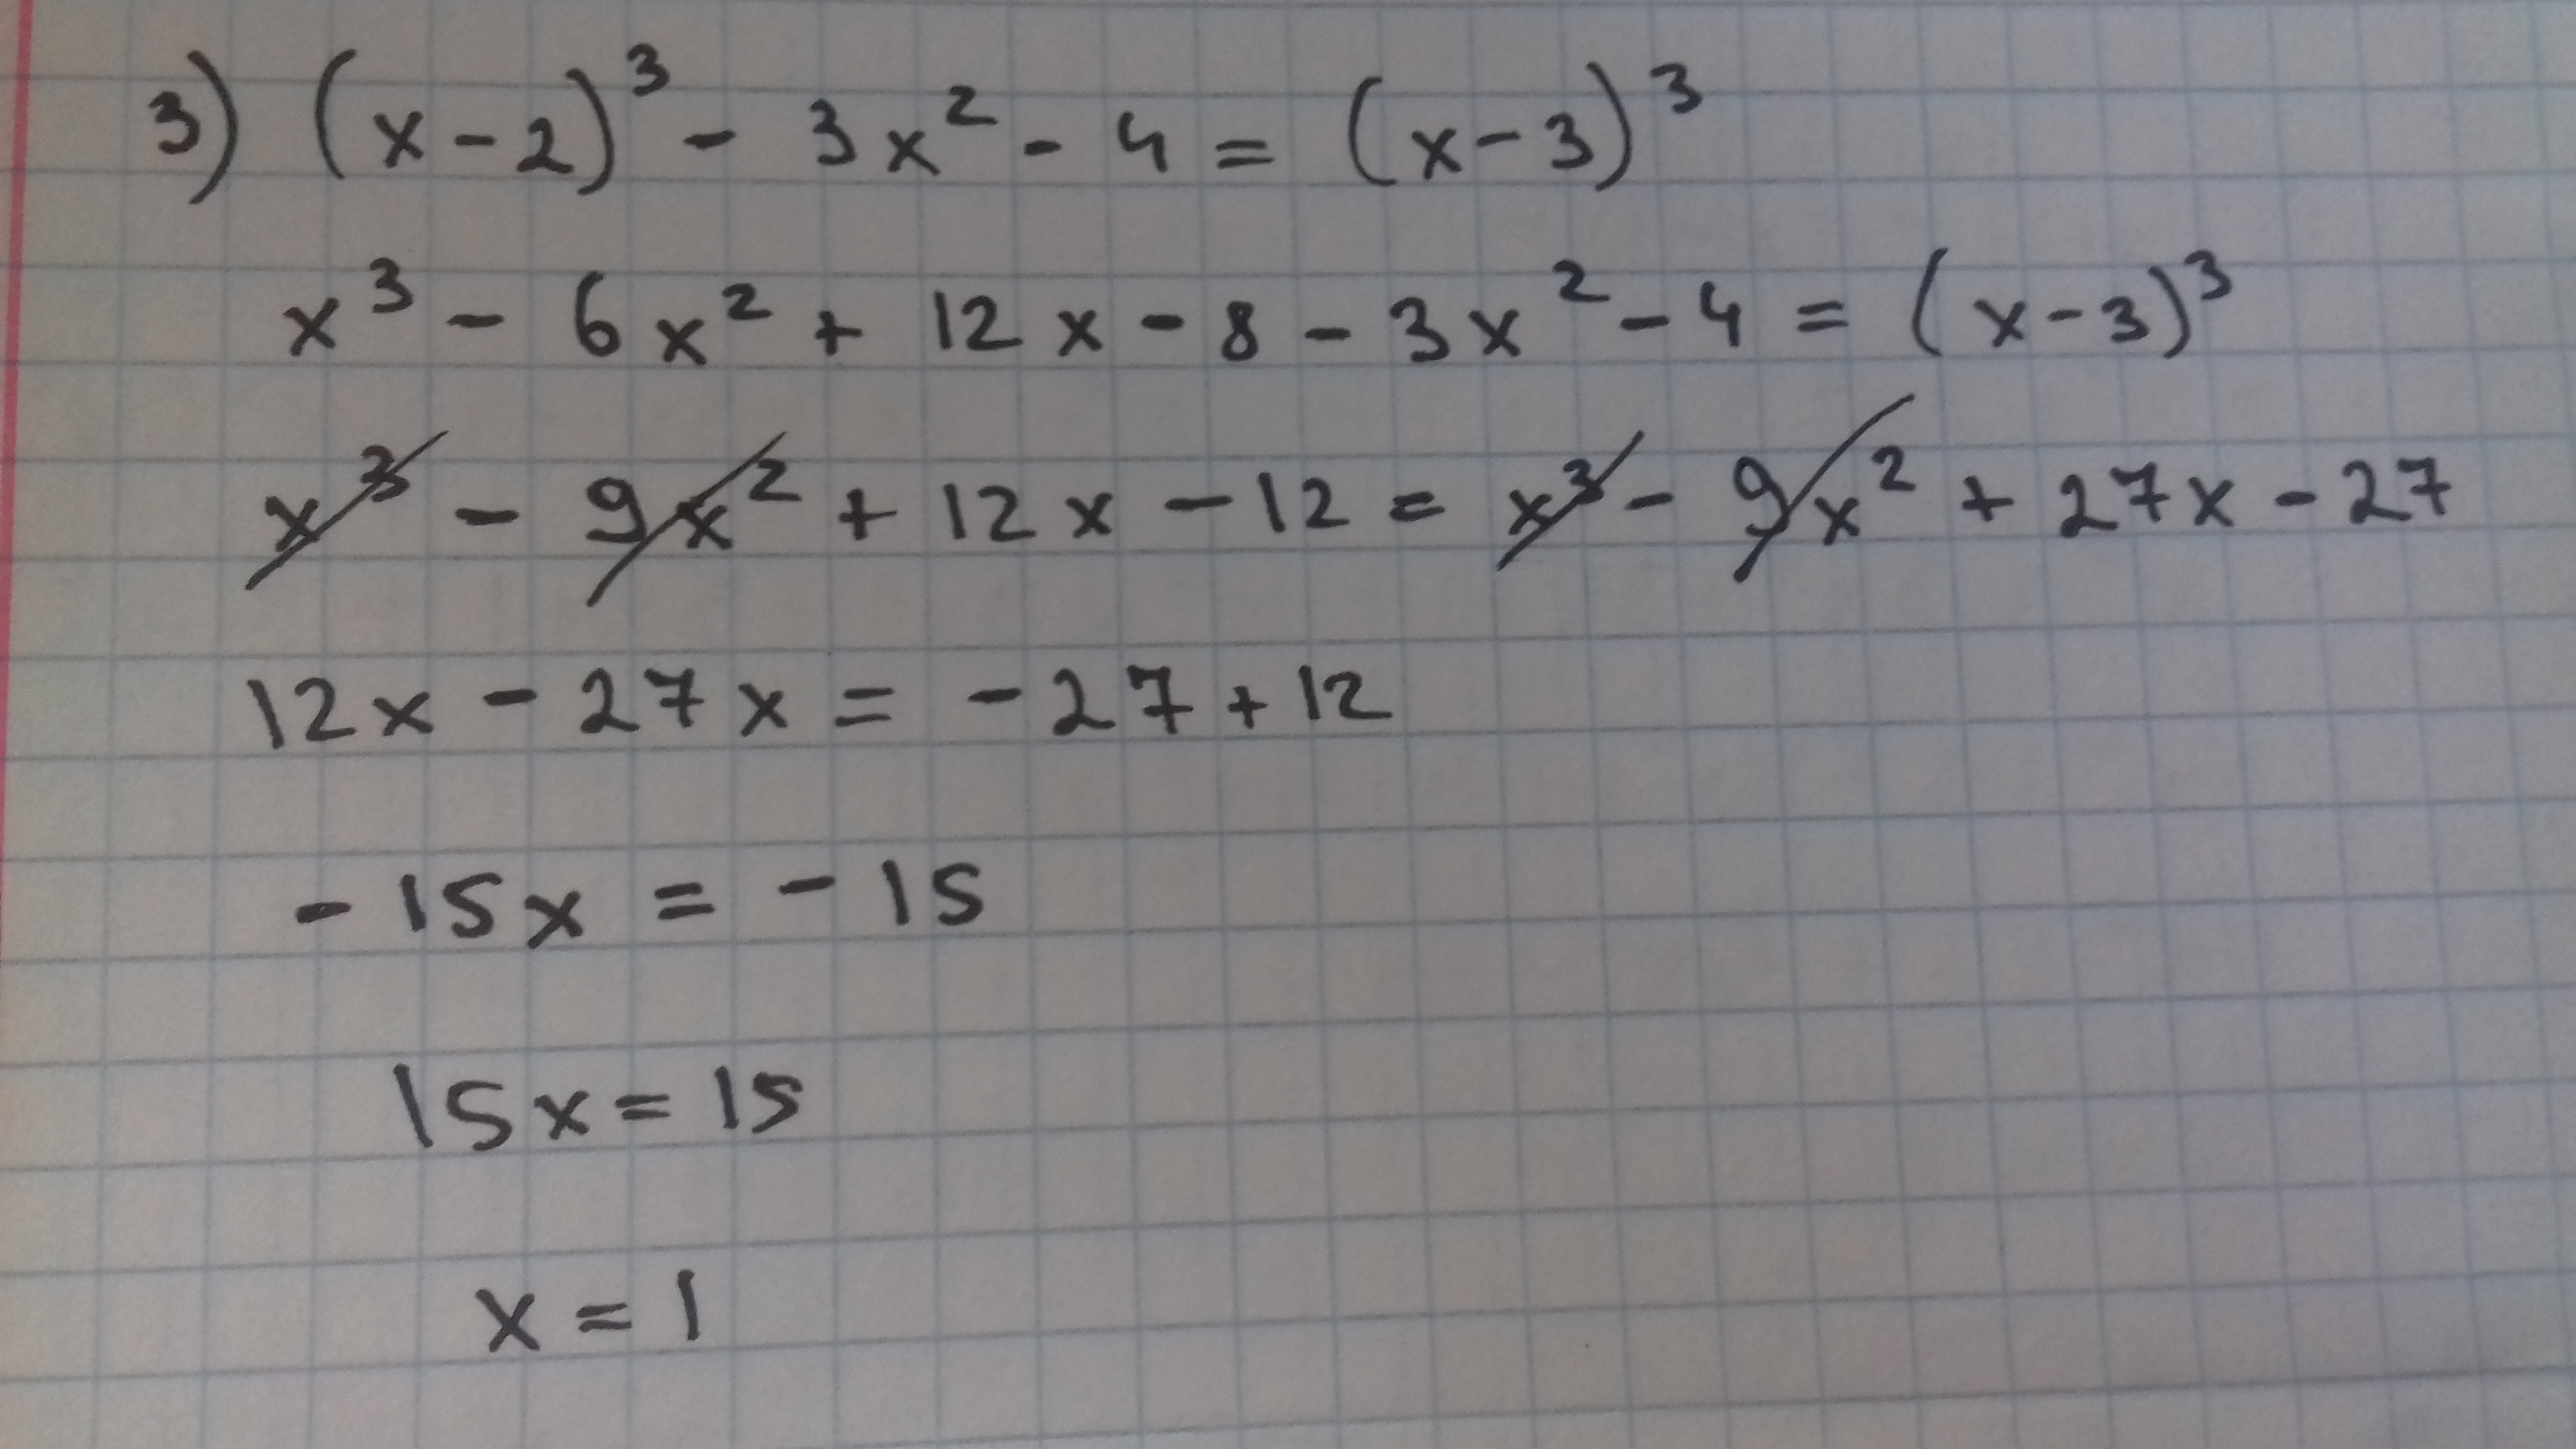 3) (x-2)³ - 3x² - 4 = (x-3)³
x³ - 6x² + 12x - 8 - 3x² - 4 = (x-3)³
x³ - 9x² + 12x - 12 = x³ - 9x² + 27x - 27
12x - 27x = -27 + 12
-15x = -15
15x = 15
x = 1